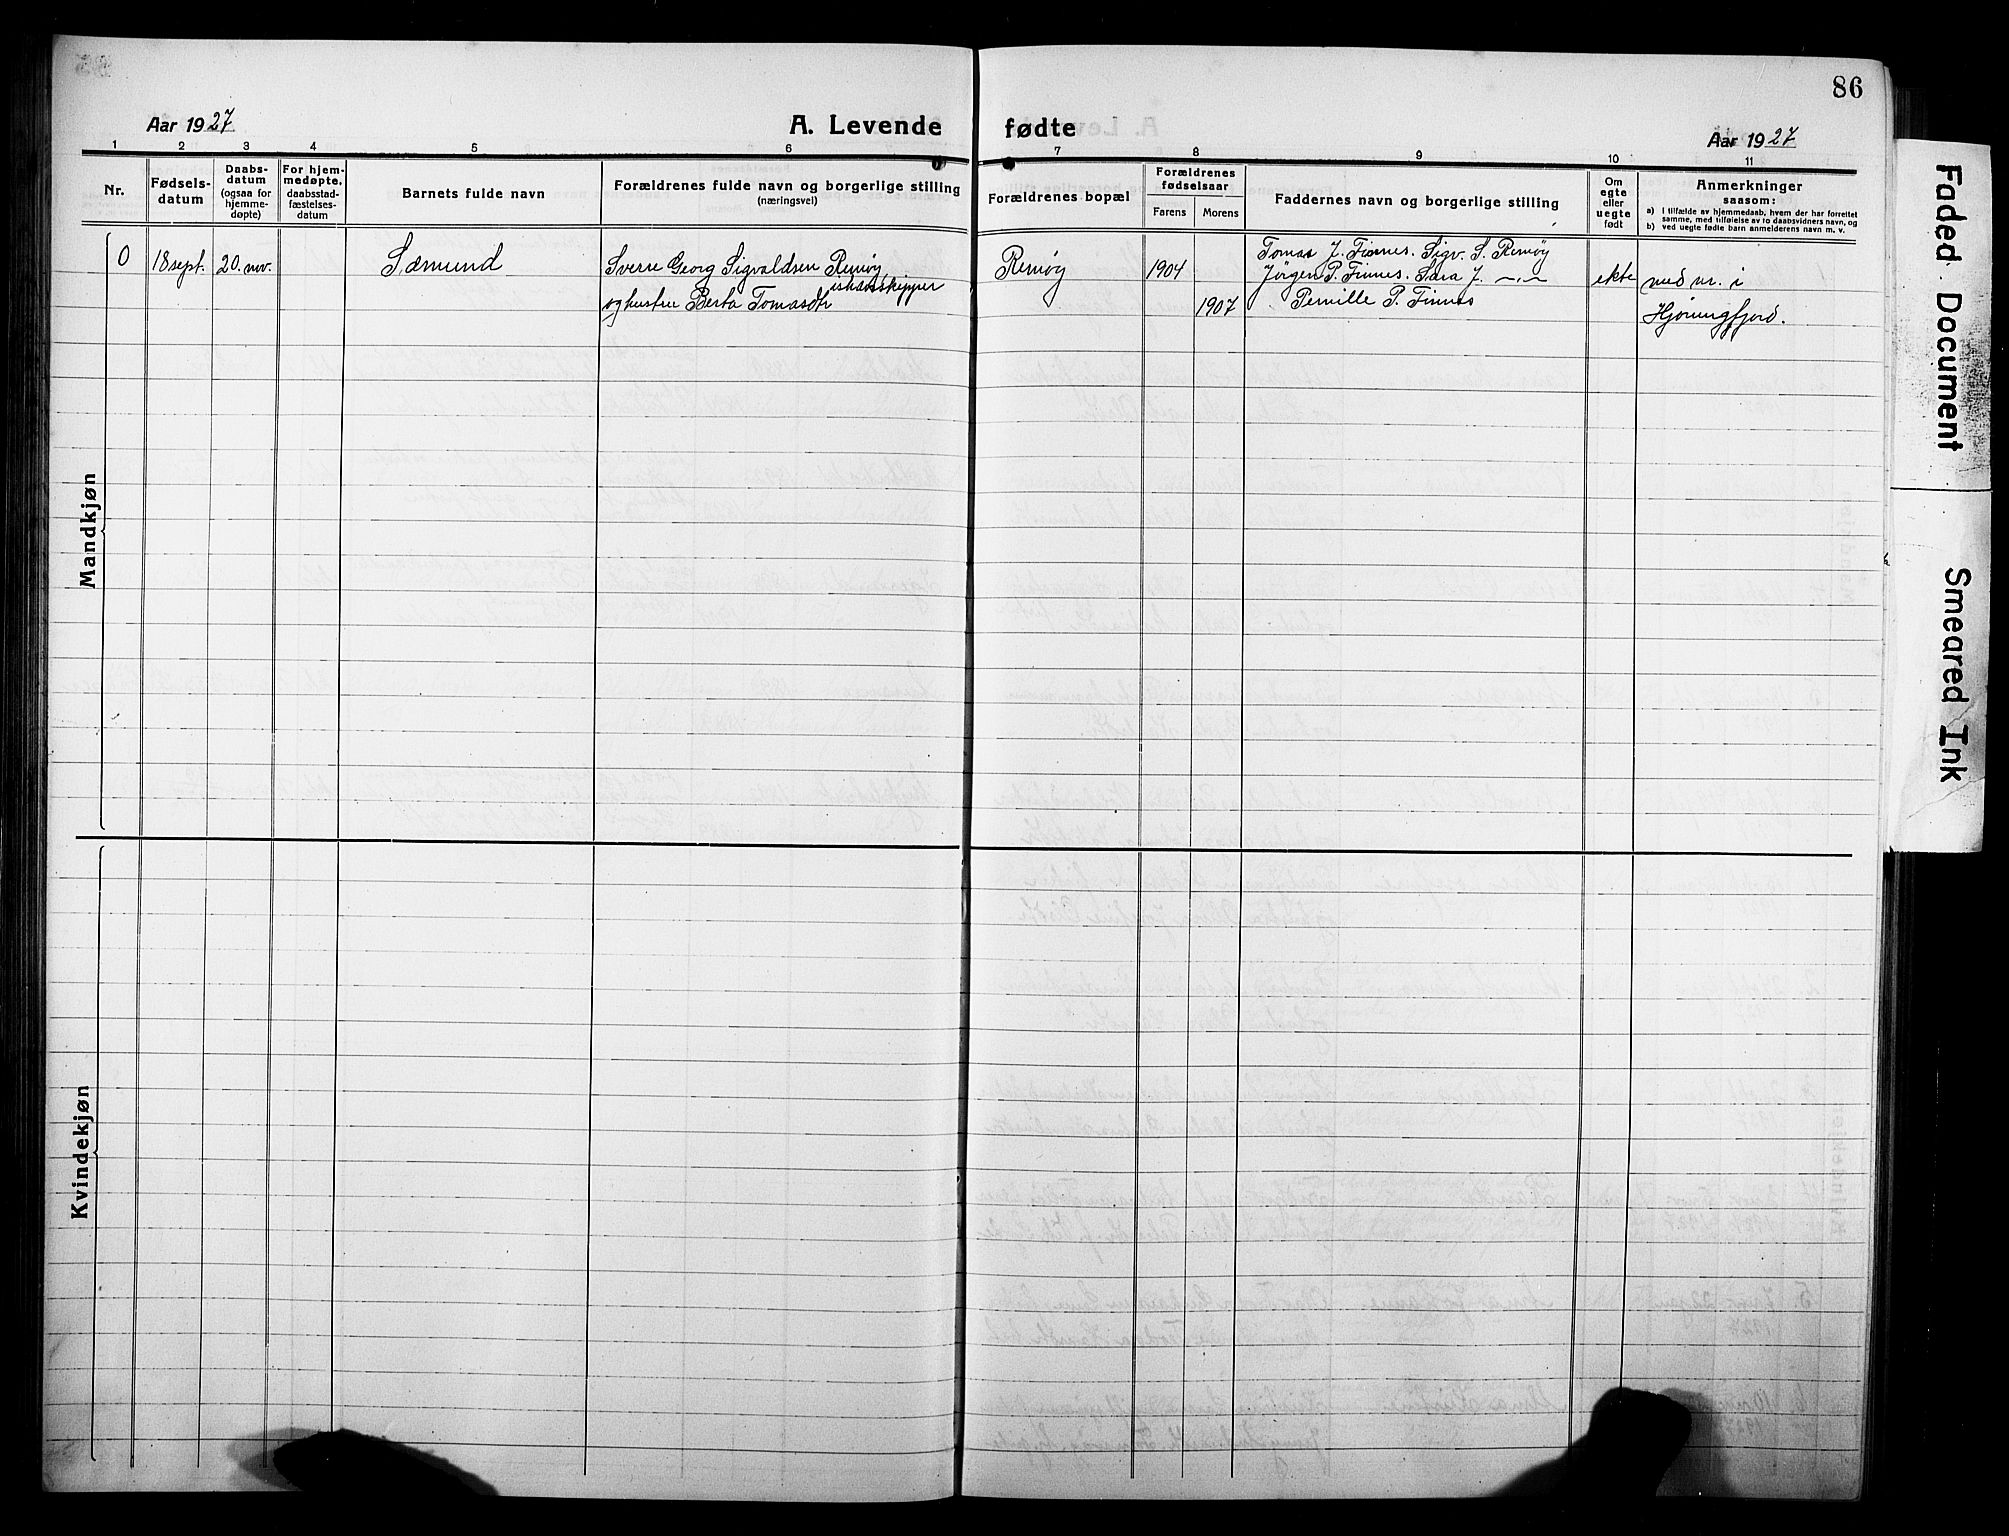 86
Aar 1927
A. Levende fødte
Aar 1927
1 2 3 4 5 6 7 8 9 10 11
Nr.
Fødsels-
datum
Daabs-
datum
(ogsaa for
hjemme-
døpte)
For hjem-
medøpte,
daabsstad-
fæstelses-
datum
Barnets fulde navn
Forældrenes fulde navn og borgerlige stilling
(næringsvei)
Forældrenes bopæl
Forældrenes
fødselsaar
Farens
Morens
Faddernes navn og borgerlige stilling
Om
egte
eller
uegte
født
Anmerkninger
saasom:
a) I tilfælde av hjemmedaab, hvem der har forrettet
samme, med tilføielse av to daabsvidners navn, og
b) ved uegte fødte barn anmelderens navn m. v.
0
18 sept.
20. nov.
Sæmund
Sverre Georg Sigvaldsen Remøy,
ishavsskipper
og hustru Berta Tomasdtr
Remøy
1904
1907
Tomas J. Finnes. Sigv. S. Remøy
Jørgen P. Finnes. Sara J. —"—
Pernille P. Finnes
ekte
med nr. i
Hjørungfjord.
Mandkjøn
Kvindekjøn
Faded Document
Smeared Ink